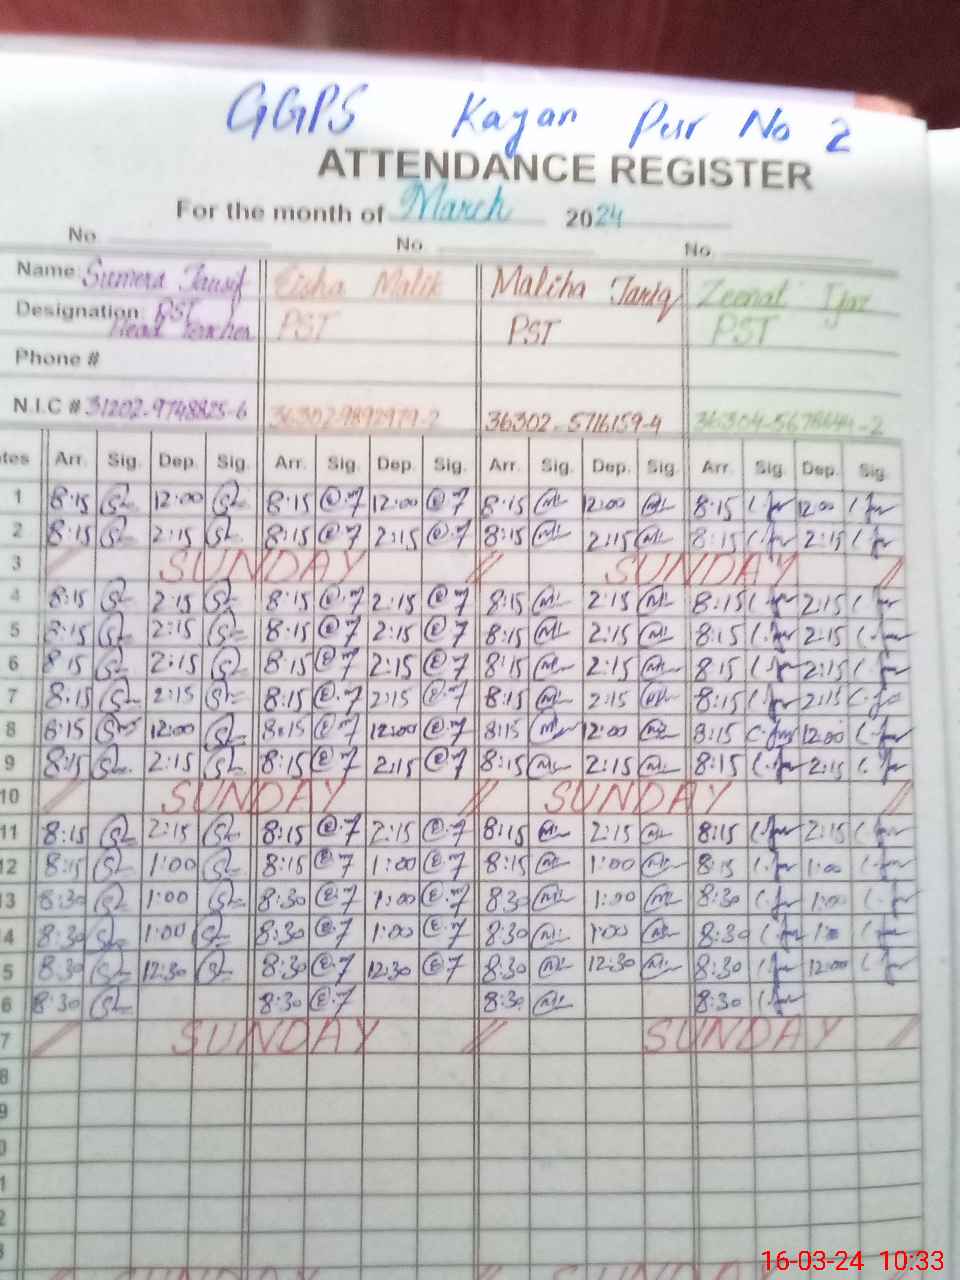 GGPS Kayan Pur No 2
ATTENDANCE REGISTER
For the month of March 2024
No No No
Name: Sumera Eisha Malik Maliha Tariq Zeenat
Designation: PST PST PST PST
Head Teacher
Phone #
N.I.C # 31202-9748825-6 36302-9892979-2 36302-5716159-4
Arr. Sig. Dep. Sig. Arr. Sig. Dep. Sig. Arr. Sig. Dep. Sig. Arr. Sig. Dep. Sig.
1 8:15 12:00 8:15 12:00 8:15 12:00 8:15 12:00
2 8:15 2:15 8:15 2:15 8:15 2:15 8:15 2:15
3 // SUNDAY // SUNDAY //
4 8:15 2:15 8:15 2:15 8:15 2:15 8:15 2:15
5 8:15 2:15 8:15 2:15 8:15 2:15 8:15 2:15
6 8:15 2:15 8:15 2:15 8:15 2:15 8:15 2:15
7 8:15 2:15 8:15 2:15 8:15 2:15 8:15 2:15
8 8:15 12:00 8:15 12:00 8:15 12:00 8:15 12:00
9 8:15 2:15 8:15 2:15 8:15 2:15 8:15 2:15
10 // SUNDAY // SUNDAY //
11 8:15 2:15 8:15 2:15 8:15 2:15 8:15 2:15
12 8:15 1:00 8:15 1:00 8:15 1:00 8:15 1:00
13 8:30 1:00 8:30 1:00 8:30 1:00 8:30 1:00
4 8:30 1:00 8:30 1:00 8:30 1:00 8:30
5 8:30 12:30 8:30 12:30 8:30 12:30 8:30 12:00
6 8:30 8:30 8:30 8:30
7 // SUNDAY // SUNDAY //
8
9
0
1
2
3
SUNDAY SUNDAY
16-03-24 10:33